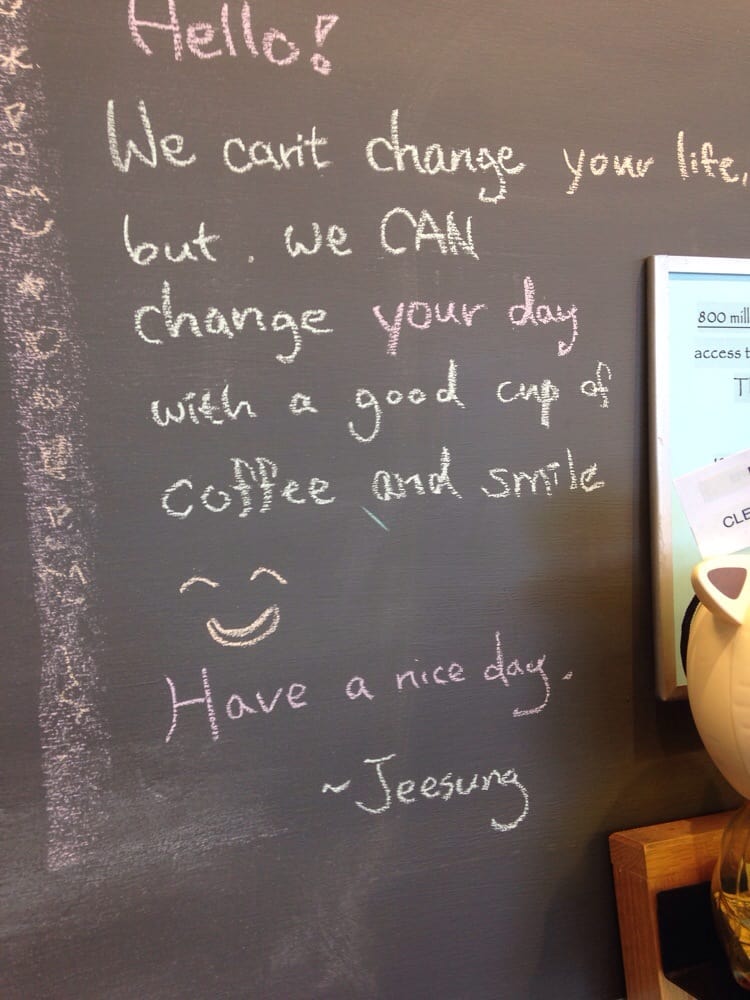 Hello!
We can't change your life,
but. we CAN
change your day
with a good cup of
coffee and smile
Have a nice day.
~Jeesung
800 mill
access t
T
CLE